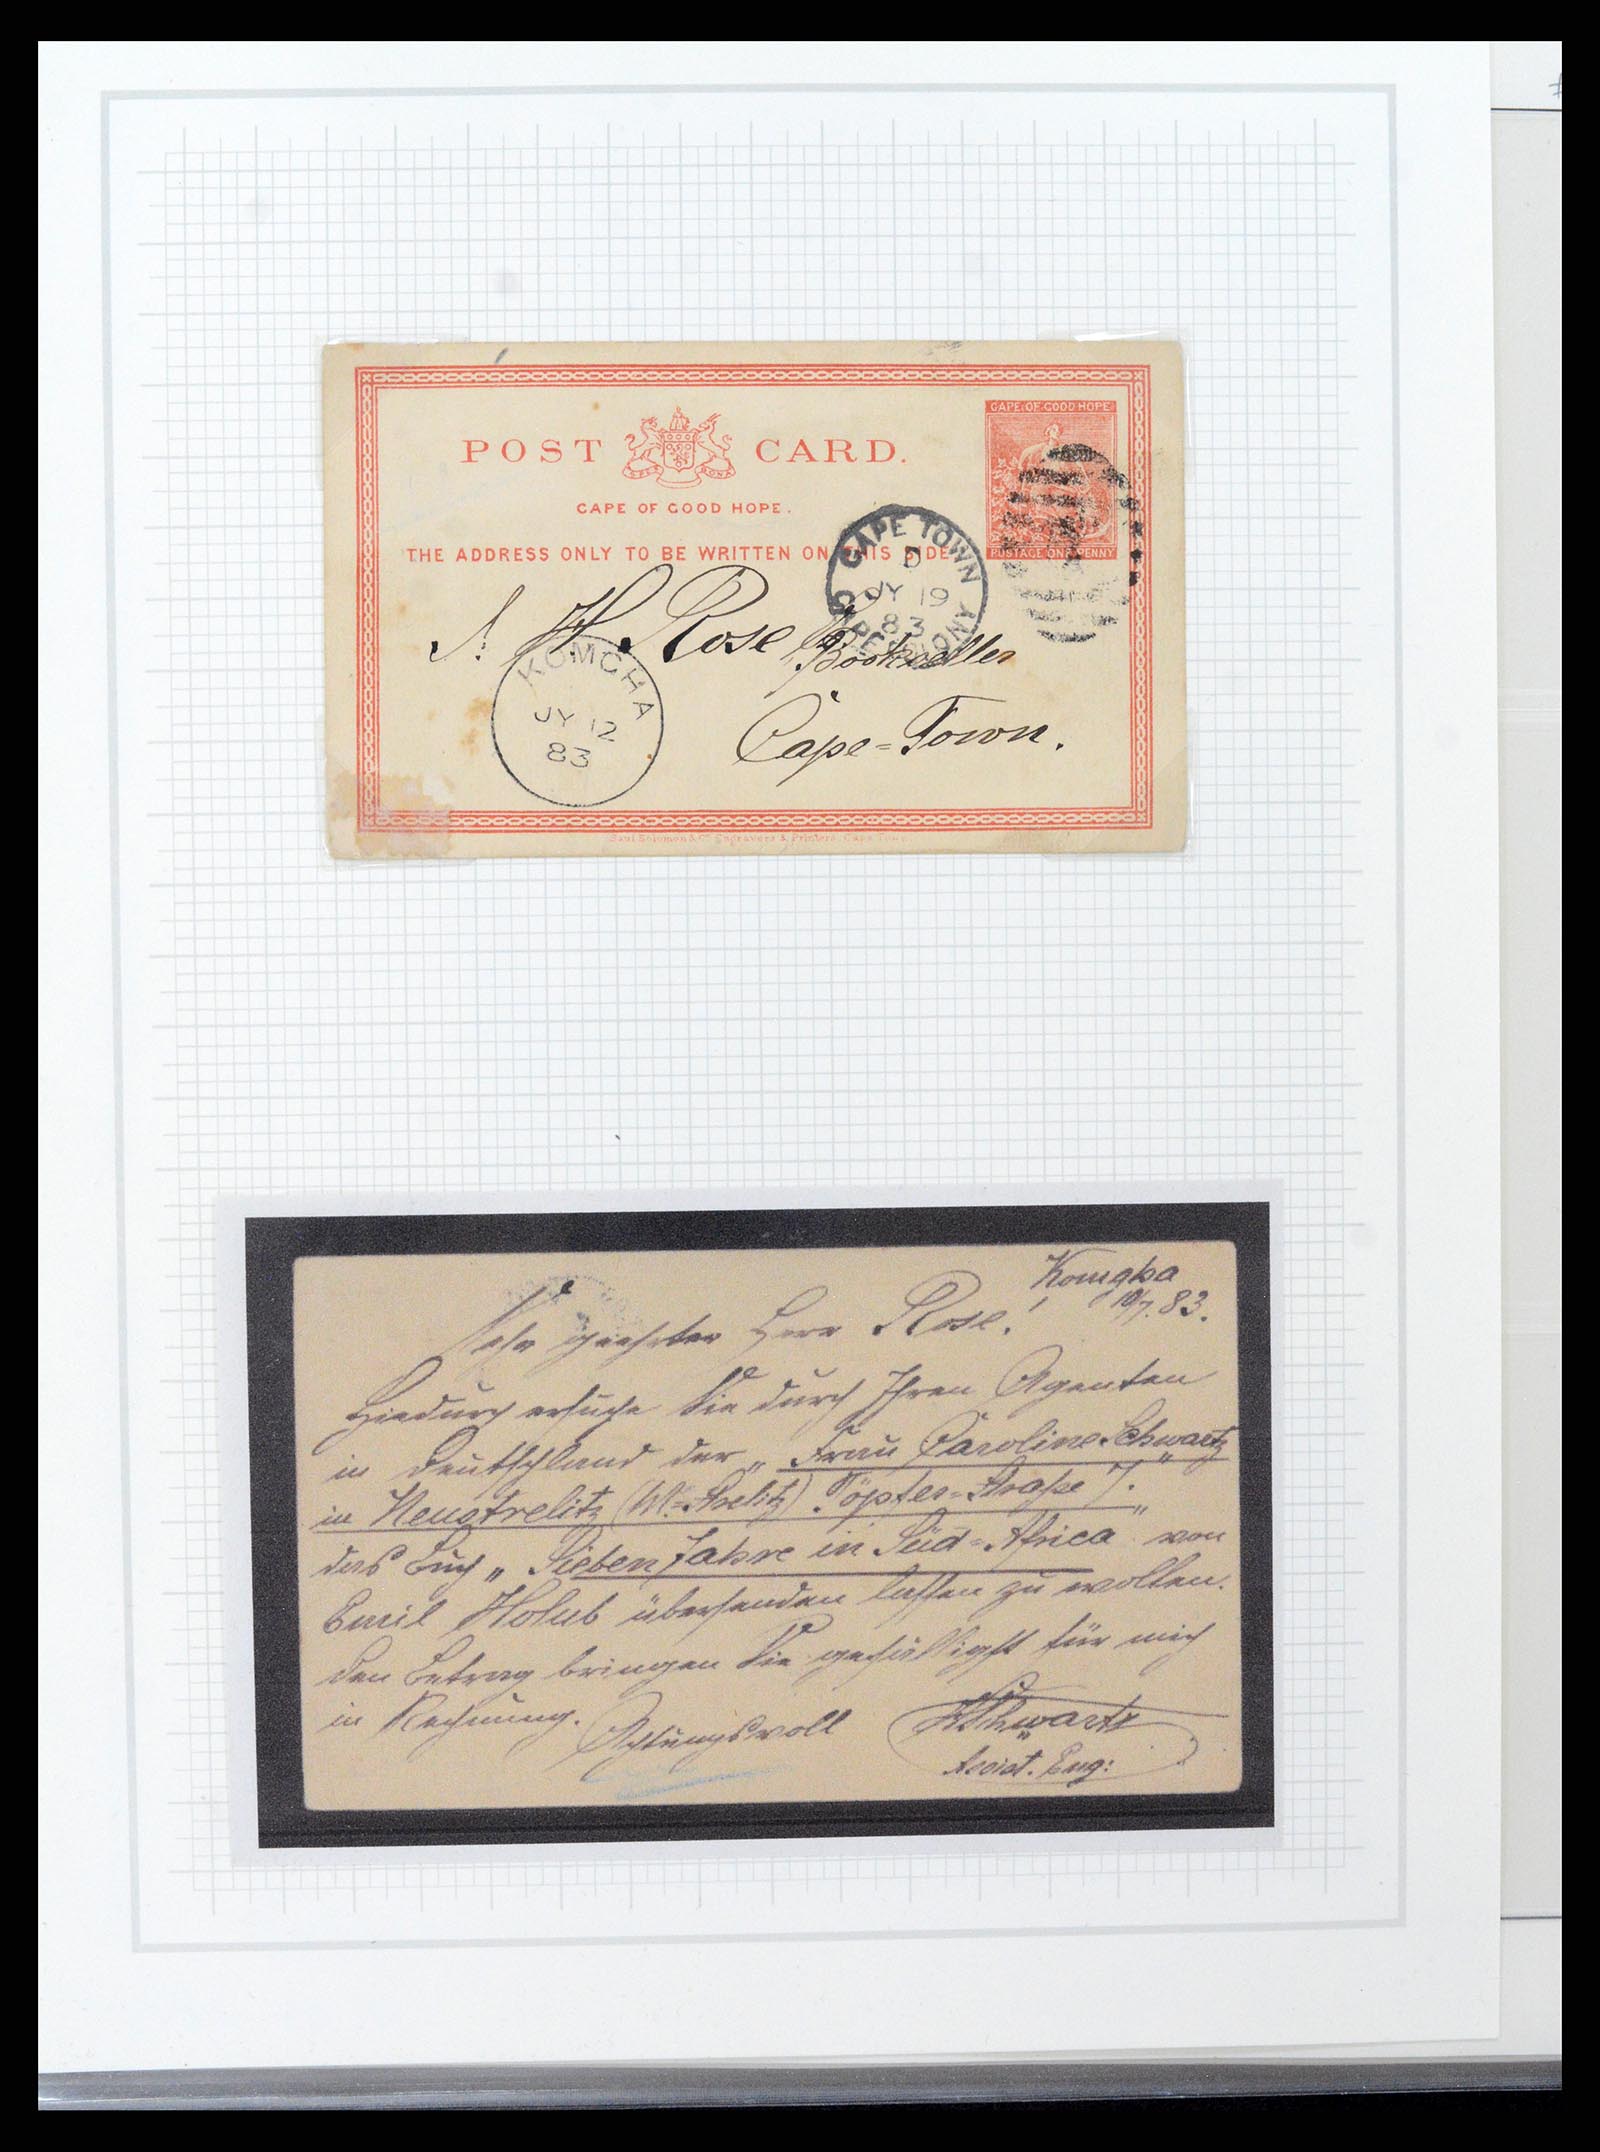 CAPE OF GOOD HOPE
POST CARD.
SPES BONA
CAPE OF GOOD HOPE.
THE ADDRESS ONLY TO BE WRITTEN ON THIS SIDE
POSTAGE ONE PENNY
CAPE TOWN
D
JY 19
83
CAPE COLONY
H. Rose
Bookseller
Cape=Town.
KOMGHA
JY 12
83
Saul Solomon & Co. Engravers & Printers, Cape Town
Komgha
10/7.83.
Sehr geehrter Herr Rose!
Hiedurch ersuche Sie durch Ihren Agenten
in Deutschland der „Frau Caroline Schwartz
in Neustrelitz (M=Strelitz) Töpfer=Straße 7."
das Buch „Sieben Jahre in Süd=Africa" von
Emil Holub übersenden lassen zu wollen.
Den Betrag bringen Sie gefälligst für mich
in Rechnung. Achtungsvoll
Schwartz
Assist. Eng: